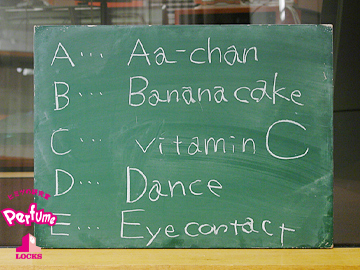 A… Aa-chan
B… Banana cake
C… vitamin C
D… Dance
E… Eye contact
Perfume
LOCKS